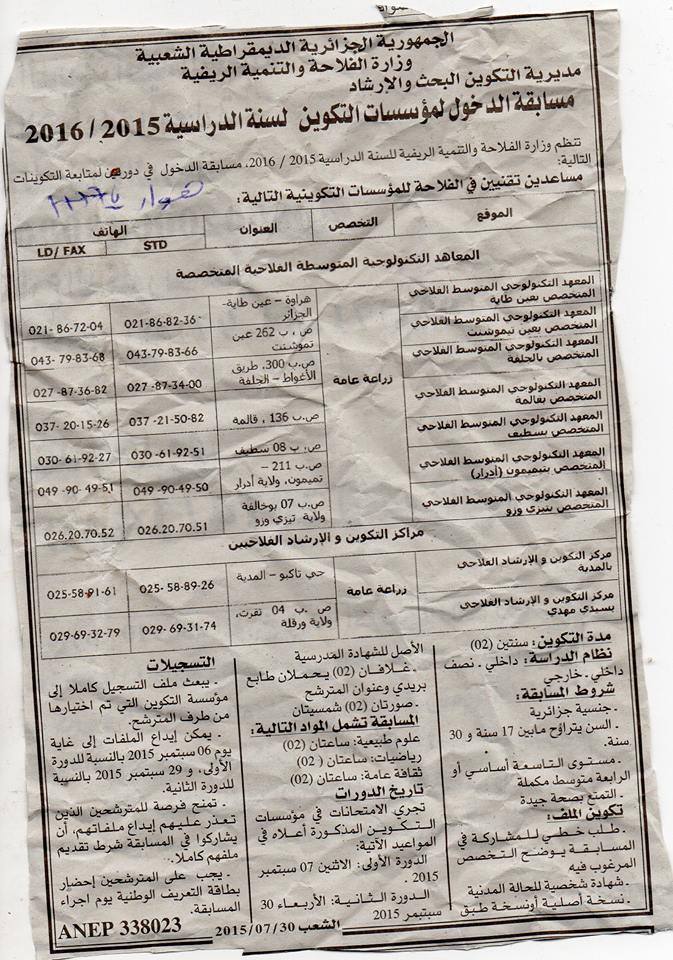 الجمهورية الجزائرية الديمقراطية الشعبية
وزارة الفلاحة والتنمية الريفية
مديرية التكوين البحث والإرشاد
مسابقة الدخول لمؤسسات التكوين لسنة الدراسية 2015 / 2016
تنظم وزارة الفلاحة والتنمية الريفية للسنة الدراسية 2015 / 2016، مسابقة الدخول في دورتين لمتابعة التكوينات
التالية:
مساعدين تقنيين في الفلاحة للمؤسسات التكوينية التالية:
الموقع التخصص العنوان الهاتف
STD LD/ FAX
المعاهد التكنولوجية المتوسطة الفلاحية المتخصصة
المعهد التكنولوجي المتوسط الفلاحي
المتخصص بعين طاية
هراوة – عين طاية-
الجزائر
021-86-82-36
021- 86-72-04
المعهد التكنولوجي المتوسط الفلاحي
المتخصص بعين تيموشنت
ص ، ب 262 عين
تموشنت
043-79-83-66
043- 79-83-68
المعهد التكنولوجي المتوسط الفلاحي
المتخصص بالجلفة
ص.ب 300، طريق
الأغواط – الجلفة
027 -87-34-00
027 -87-36-82
زراعة عامة
المعهد التكنولوجي المتوسط الفلاحي
المتخصص بقالمة
ص.ب 136 ، قالمة
037 -21-50-82
037- 20-15-26
المعهد التكنولوجي المتوسط الفلاحي
المتخصص بسطيف
ص. ب 08 سطيف
030 -61-92-51
030- 61-92-27
المعهد التكنولوجي المتوسط الفلاحي
المتخصص بتيميمون (أدرار)
ص.ب 211 –
تميمون، ولاية أدرار
049 -90-49-50
049 -90- 49-51
المعهد التكنولوجي المتوسط الفلاحي
المتخصص بتيزي وزو
ص.ب 07 بوخالفة
ولاية تيزي وزو
026.20.70.51
026.20.70.52
مراكز التكوين و الإرشاد الفلاحيين
مركز التكوين و الإرشاد الفلاحي
بالمدية
زراعة عامة
حي تاكبو – المدية
025- 58-89-26
025-58-91-61
مركز التكوين و الإرشاد الفلاحي
بسيدي مهدي
ص. ب 04 تقرت،
ولاية ورقلة
029- 69-31-74
029-69-32-79
مدة التكوين: سنتين (02)
نظام الدراسة: داخلي، نصف
داخلي، خارجي
شروط المسابقة:
- جنسية جزائرية
- السن يتراوح مابين 17 سنة و 30
سنة.
- مستوى التاسعة أساسي أو
الرابعة متوسط مكملة
- التمتع بصحة جيدة
تكوين الملف:
- طلب خطي للمشاركة في
المسابقة يوضح التخصص
المرغوب فيه
- شهادة شخصية للحالة المدنية
- نسخة أصلية أونسخة طبق
الأصل للشهادة المدرسية
- غلافان (02) يحملان طابع
بريدي وعنوان المترشح
- صورتان (02) شمسيتان
المسابقة تشمل المواد التالية:
علوم طبيعية: ساعتان (02)
رياضيات: ساعتان (02)
ثقافة عامة: ساعتان (02)
تاريخ الدورات
تجرى الامتحانات في مؤسسات
التكوين المذكورة أعلاه في
المواعيد الآتية:
الدورة الأولى: الاثنين 07 سبتمبر
2015 .
الدورة الثانية: الأربعاء 30
سبتمبر 2015
التسجيلات
- يبعث ملف التسجيل كاملا إلى
مؤسسة التكوين التي تم اختيارها
من طرف المترشح.
- يمكن إيداع الملفات إلى غاية
يوم 06 سبتمبر 2015 بالنسبة للدورة
الأولى، و 29 سبتمبر 2015 بالنسبة
للدورة الثانية.
- تمنح فرصة للمترشحين الذين
تعذر عليهم إيداع ملفاتهم، أن
يشاركوا في المسابقة شرط تقديم
ملفهم كاملا.
- يجب على المترشحين إحضار
بطاقة التعريف الوطنية يوم اجراء
المسابقة.
الشعب 2015/07/30
ANEP 338023